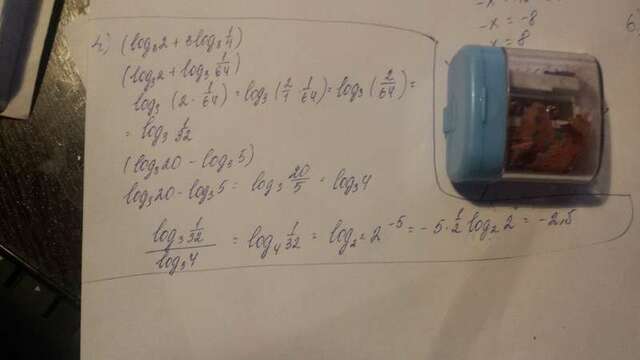 -x = -8
x = 8
6
4) (log₃2 + 3log₃ 1/4)
(log₃2 + log₃ 1/64)
log₃ (2 · 1/64) = log₃ (2/1 · 1/64) = log₃ (2/64) =
= log₃ 1/32
(log₃20 - log₃5)
log₃20 - log₃5 = log₃ 20/5 = log₃4
log₃ 1/32 / log₃4 = log₄ 1/32 = log₂² 2⁻⁵ = -5 · 1/2 log₂2 = -2,5